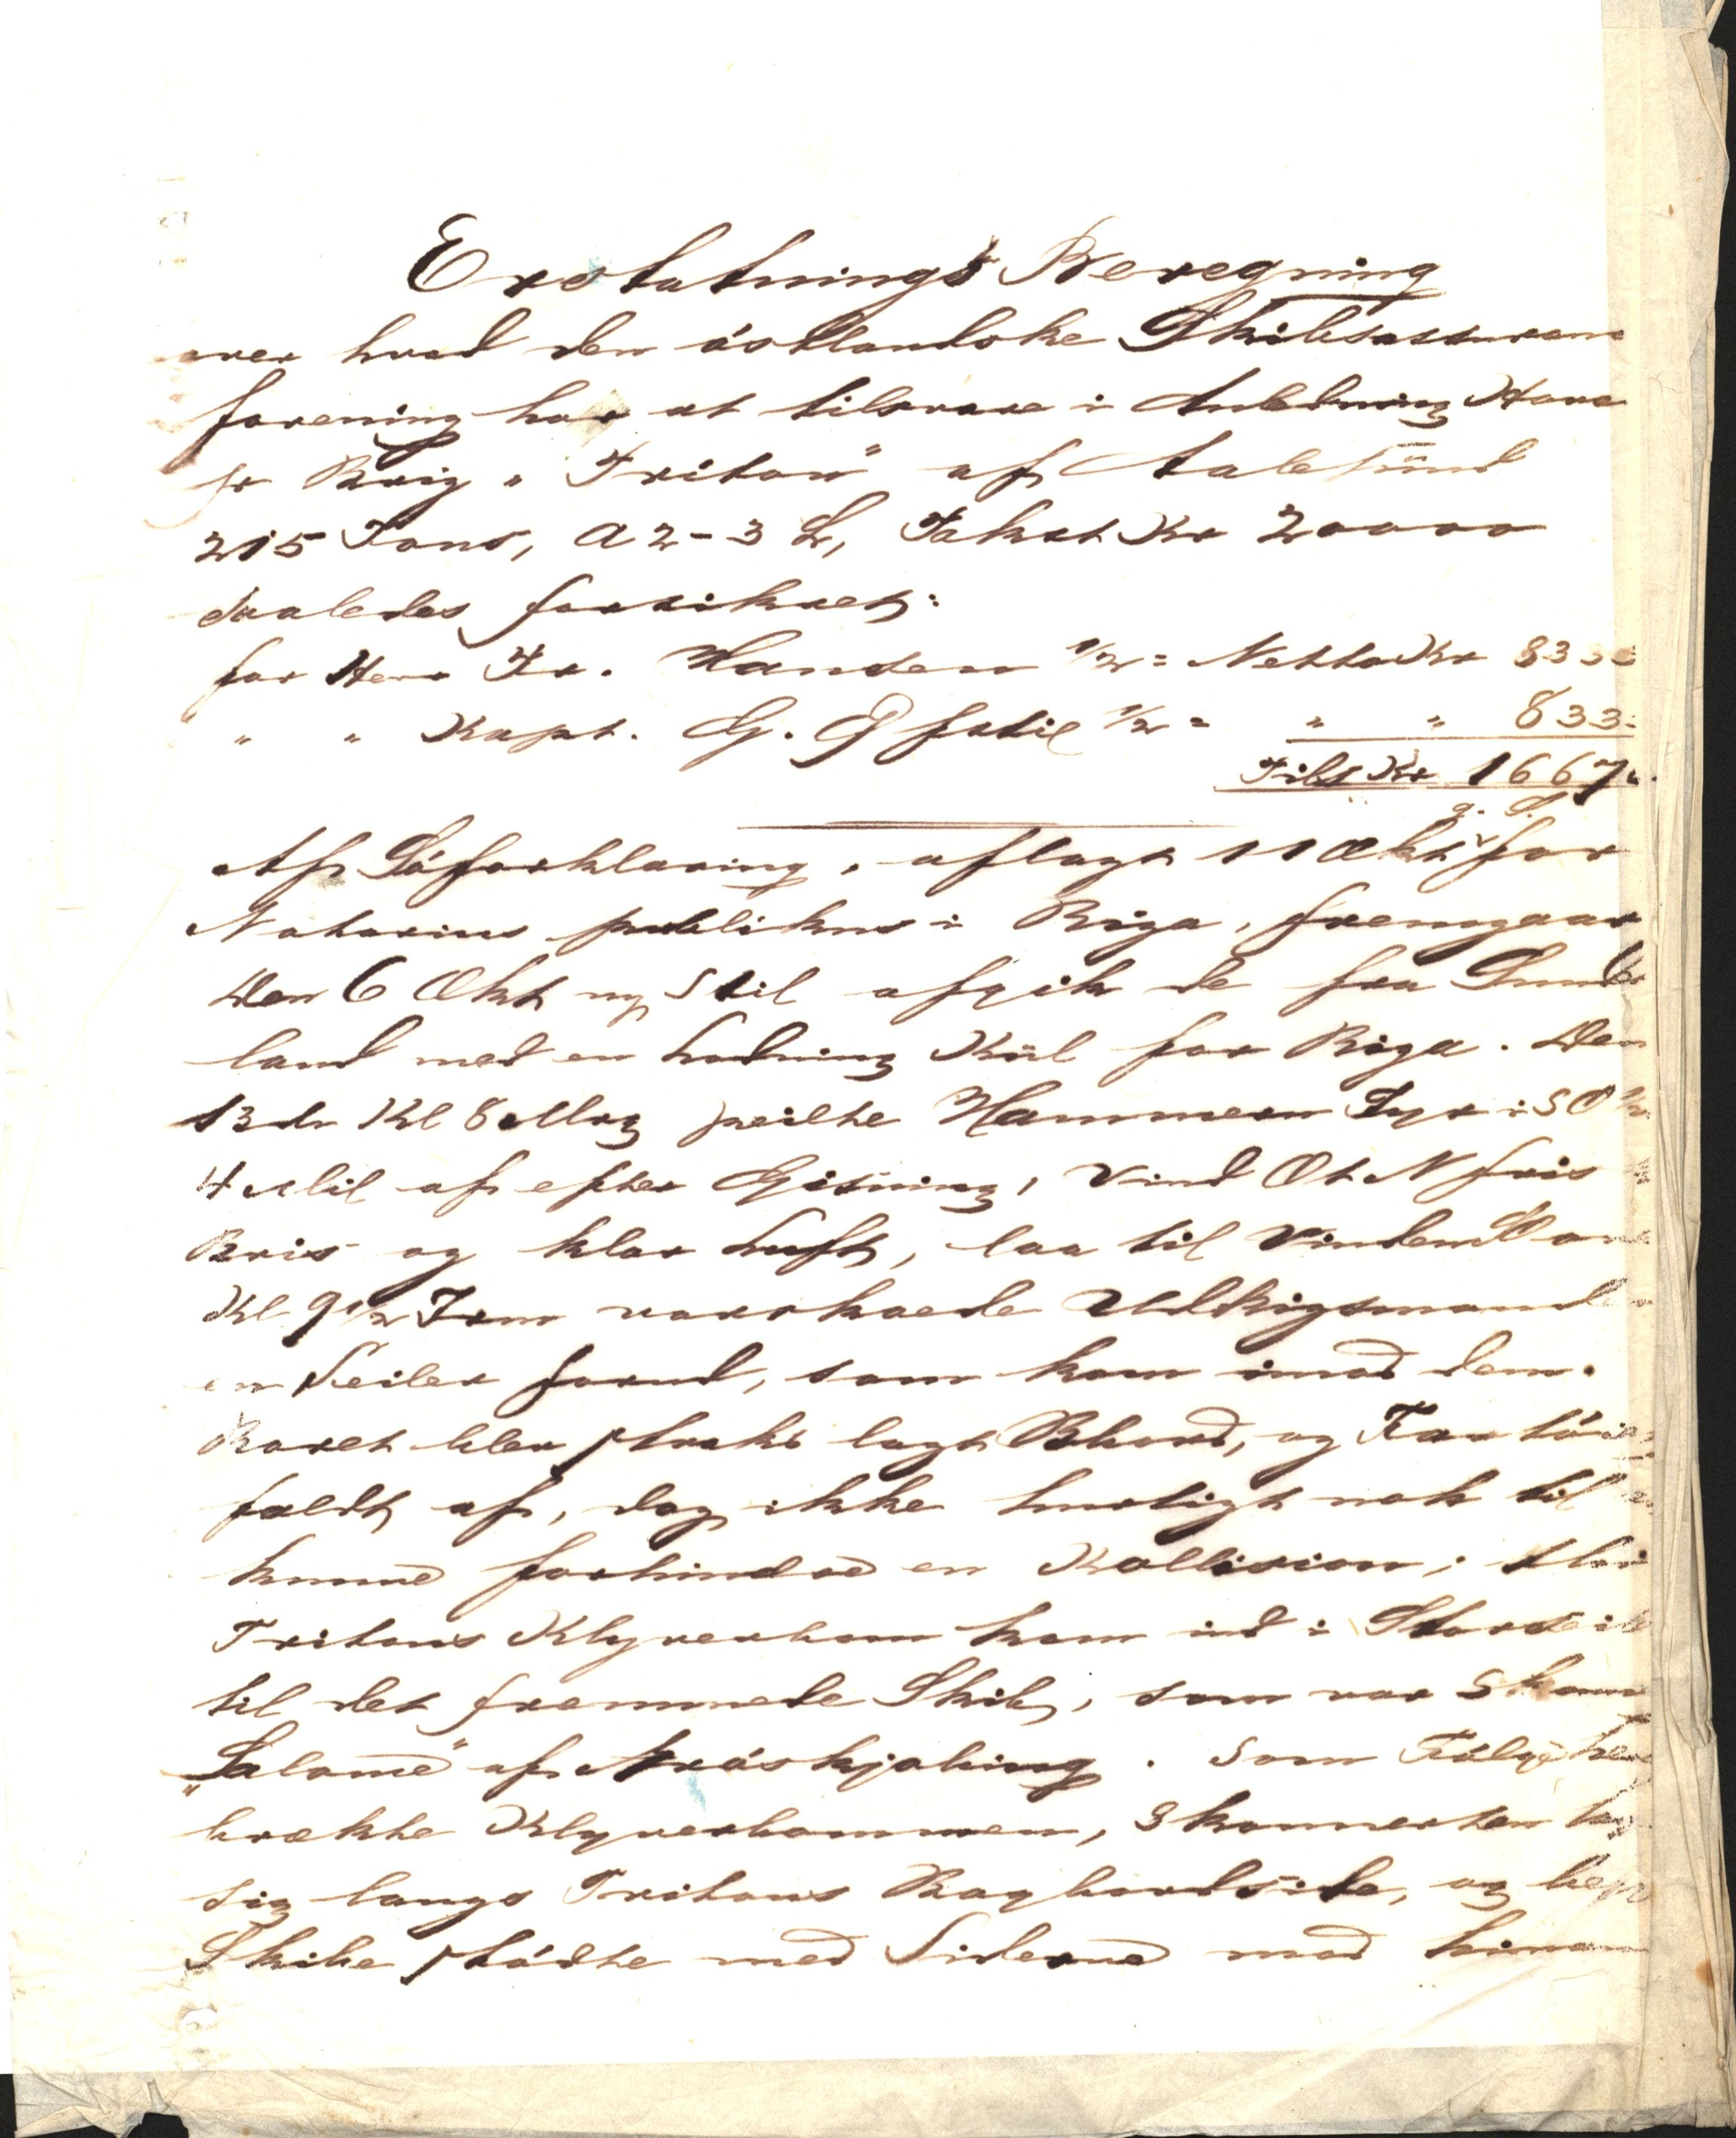 Erstatnings Beregning
over hvad den östlandske Skibsassuranse
forening har at tilsvare i Anledning Hava
ri Brig "Triton" af Aalesund
215 Tons, A 2-3 L, Takst Kr 20000
saaledes forsikret:
for Herr Fr. Hansen 1/2 = Netto Kr 833
" " Kapt. G. 1/2 = " " 833
Tils Kr 1667
g. S.
Af Söforklaring, aflagt 11 Okt for
Notarius publikus i Riga, fremgaar
Den 6 Okt ny Stil afgik de fra Sunder
land med en Ladning Kul for Riga. Den
13de Kl 8 Mrg peilte Hammeren Fyr i SO
4 Mil af efter Gisning, Vind O t N fris
Bris og klar Luft, laa til Vinden
Kl 9 1/2 Frm varskoede Udkigsmanden
en Seiler forud, som kom imod dem.
Roret blev straks lagt Bbord, og Fartöiet
faldt af, dog ikke hurtigt nok til
kunne forhindre en Kollision, thi
Tritons Klyverbom kom ind i Storseil
til det fremmede Skib, som var Skonn
"Salome" af Æröskjöbing. Som Fölge her
brækte Klyverbommen, Skonnerten
sig langs Tritons Bagbordside, og begge
Skibe stödte med Siderne mod hinan